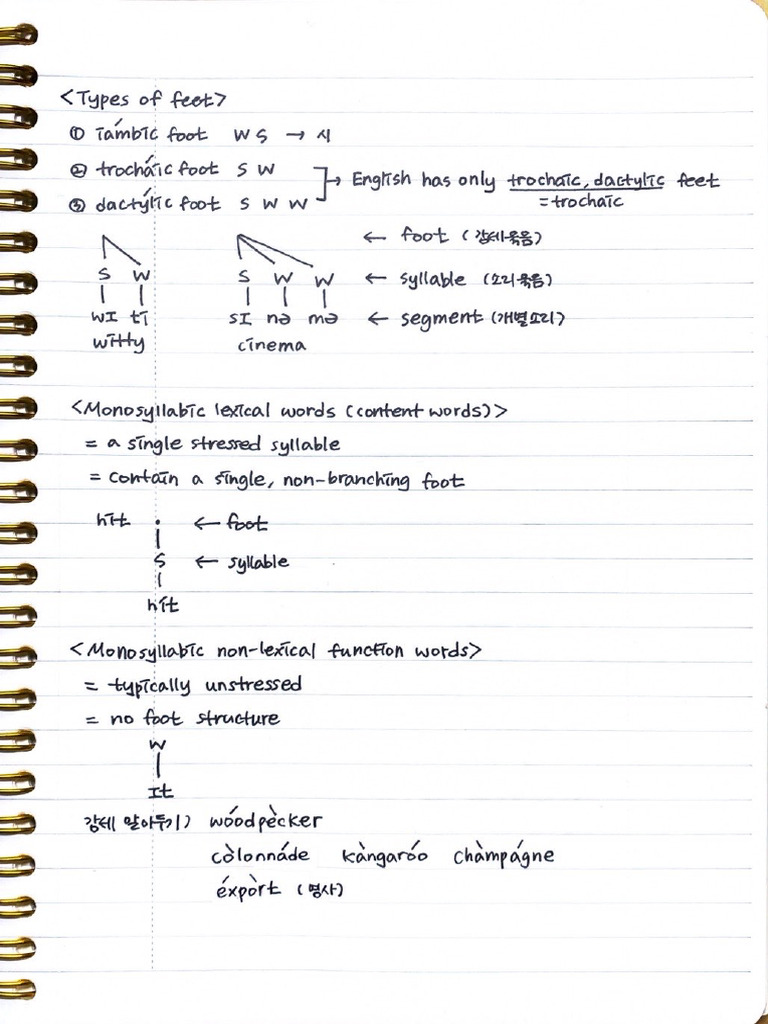 <Types of feet>
① iámbic foot W S → 시
② trocháic foot S W
English has only trochaic, dactylic feet
③ dactýlic foot S W W
=trochaic
← foot (강세묶음)
S W S W W ← syllable (소리묶음)
wɪ ti sɪ nə mə ← segment (개별소리)
witty cinema
<Monosyllabic lexical words (content words)>
= a single stressed syllable
= contain a single, non-branching foot
hit • ← foot
S ← syllable
hit
<Monosyllabic non-lexical function words>
= typically unstressed
= no foot structure
W
ɪt
강세 알아두기) wóodpècker
còlonnáde kàngaróo chàmpágne
éxpòrt (명사)